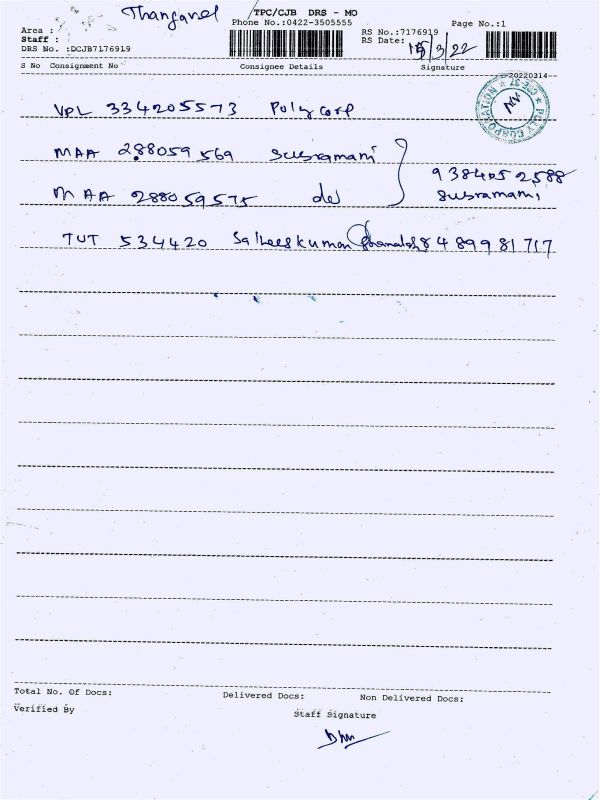 Thangavel
TPC/CJB DRS - MO
Phone No.:0422-3505555
Page No.:1
Area :
Staff :
DRS No. :DCJB7176919
RS No.:7176919
RS Date: 15/3/22
S No Consignment No Consignee Details Signature
20220314
VPL 334205573 Polycorp
MAA 288059569 Subramani
9384052588
MAA 288059575 do Subramani
TUT 534420 8489981717
POLY CORPORATION ★ CBE-37 ★
Total No. Of Docs: Delivered Docs: Non Delivered Docs:
Verified By Staff Signature